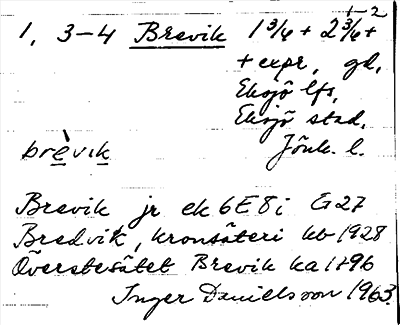 1-2
1, 3-4 Brevik 1 3/4 + 2 3/4 +
+ expr, gd,
Eksjö lfs,
Eksjö stad,
brèvik Jönk. l.
Brevik jr ek 6E8i G27
Bredvik, kronsäteri kb 1928
Överstesätet Brevik ka 1896
Inger Danielsson 1963.